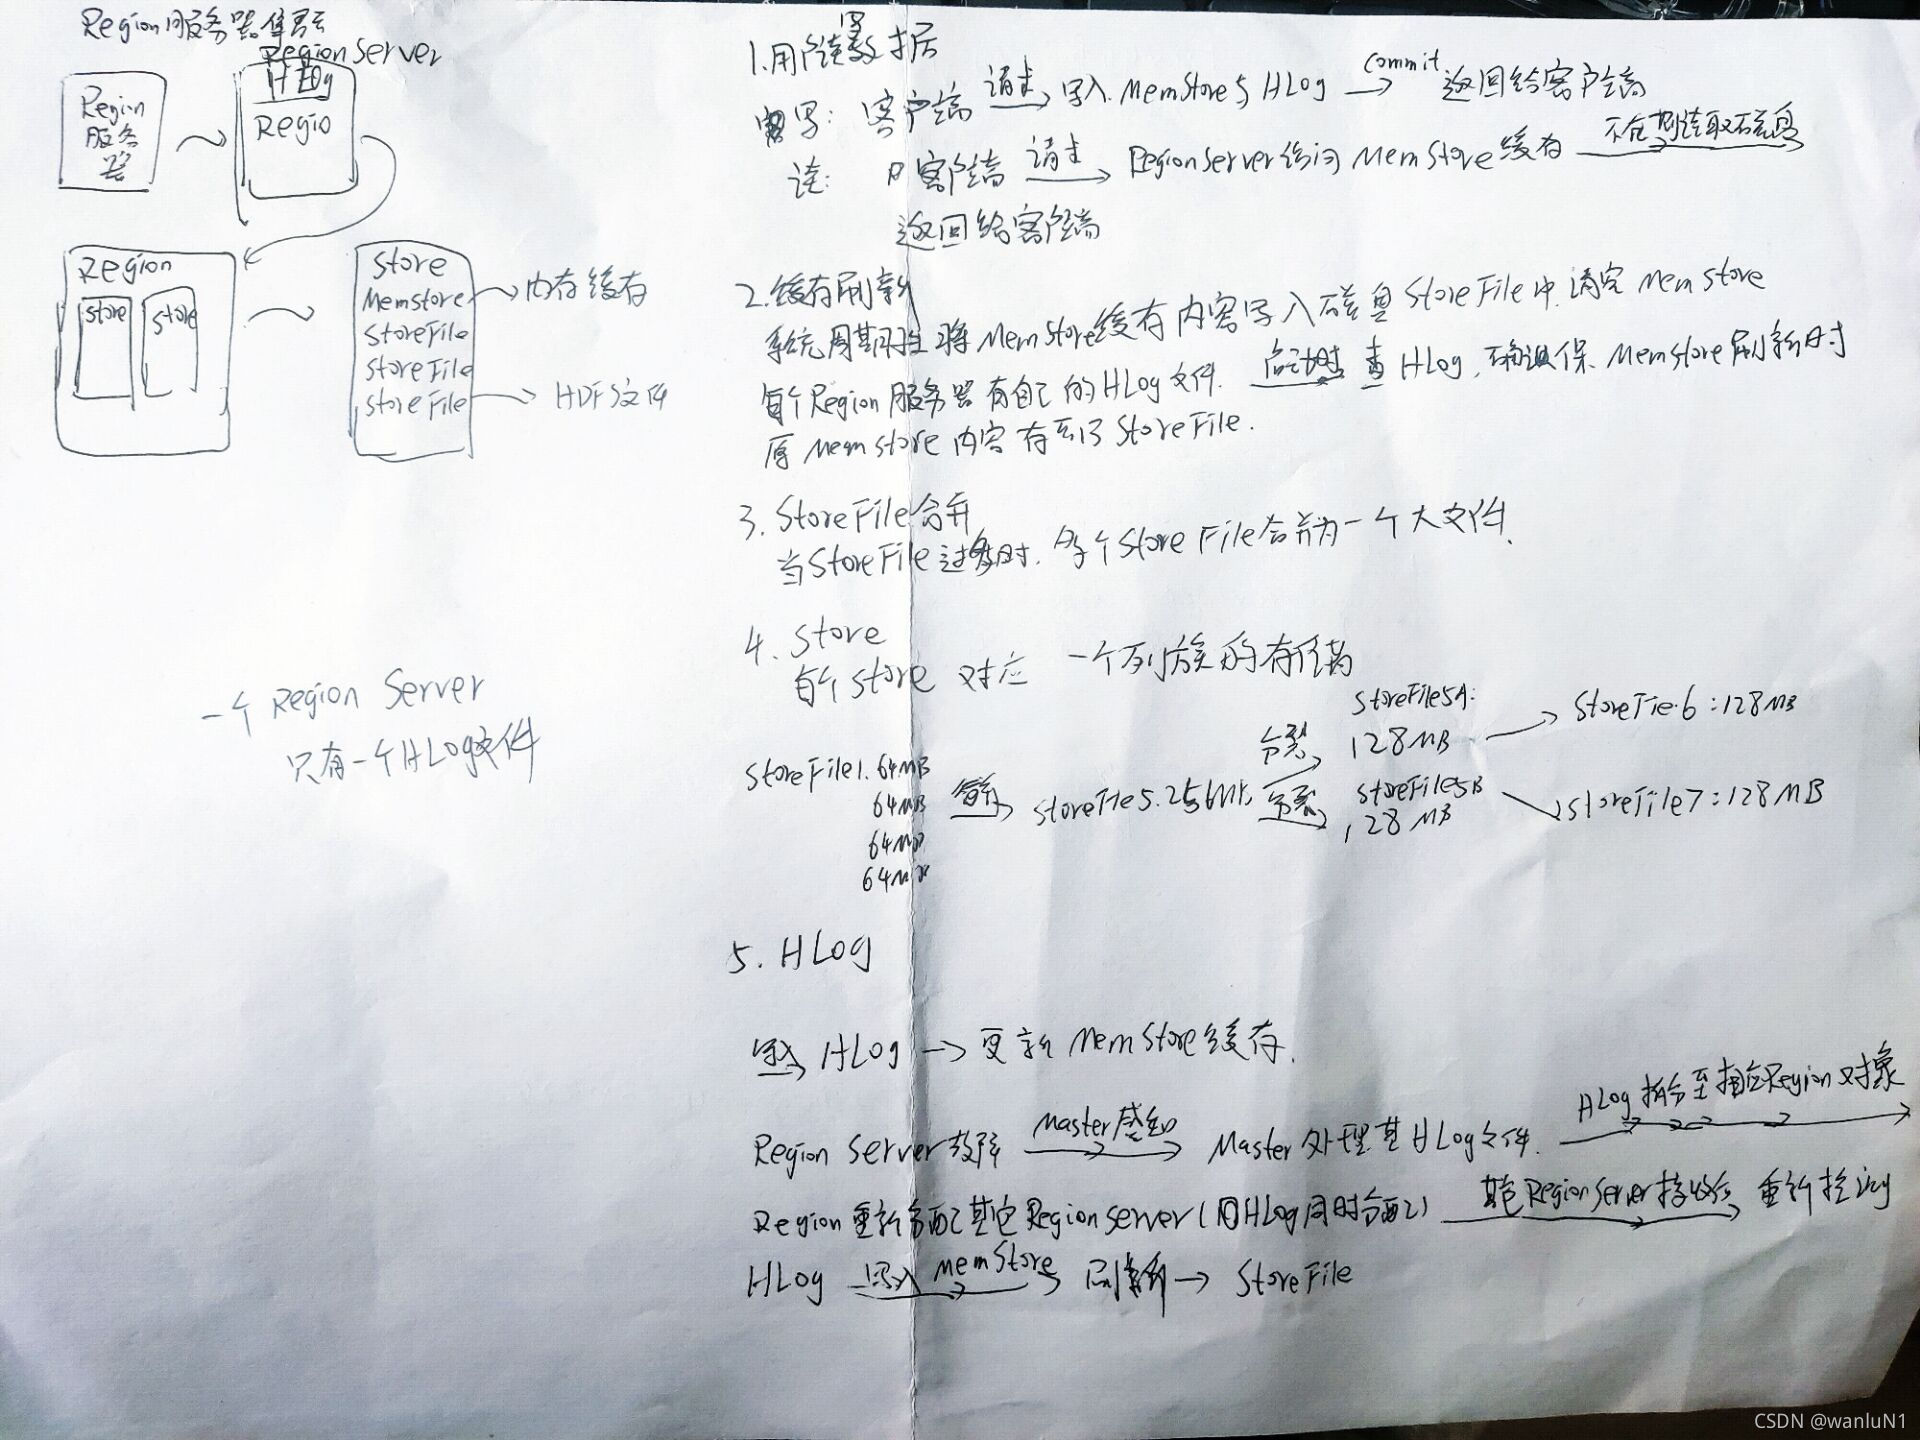 Region服务器集群
RegionServer
HLog
Region
服务
器
Regio
Region
store
store
Store
Memstore
内存缓存
StoreFile
StoreFile
StoreFile
HDFS文件
一个Region Server
只有一个HLog文件
1.用户读写数据
写: 客户端 请求 写入 MemStore与HLog commit 返回给客户端
读: 客户端 请求 RegionServer访问MemStore缓存 不在则读取磁盘
返回给客户端
2.缓存刷新
系统周期性将MemStore缓存内容写入磁盘StoreFile中.清空MemStore
每个Region服务器有自己的HLog文件. 启动时 查HLog, 确保MemStore刷新时
原Memstore内容存到了StoreFile.
3. StoreFile合并
当StoreFile过多时. 多个StoreFile合并为一个大文件.
4. Store
每个Store 对应 一个列族的存储
StoreFile1. 64MB
64MB
64MB
64MB
合并
StoreFile5.256MB
分裂
分裂
StoreFile5A:
128MB
StoreFile5B
128MB
StoreFile6:128MB
StoreFile7:128MB
5. HLog
写入 HLog → 更新MemStore缓存.
Region Server故障 Master感知 Master处理其HLog文件. HLog拆分至相应Region对象
Region重新分配其它RegionServer(同HLog同时分配) 其它RegionServer接收后 重新
HLog 写入MemStore 刷新→ StoreFile
CSDN @wanluN1